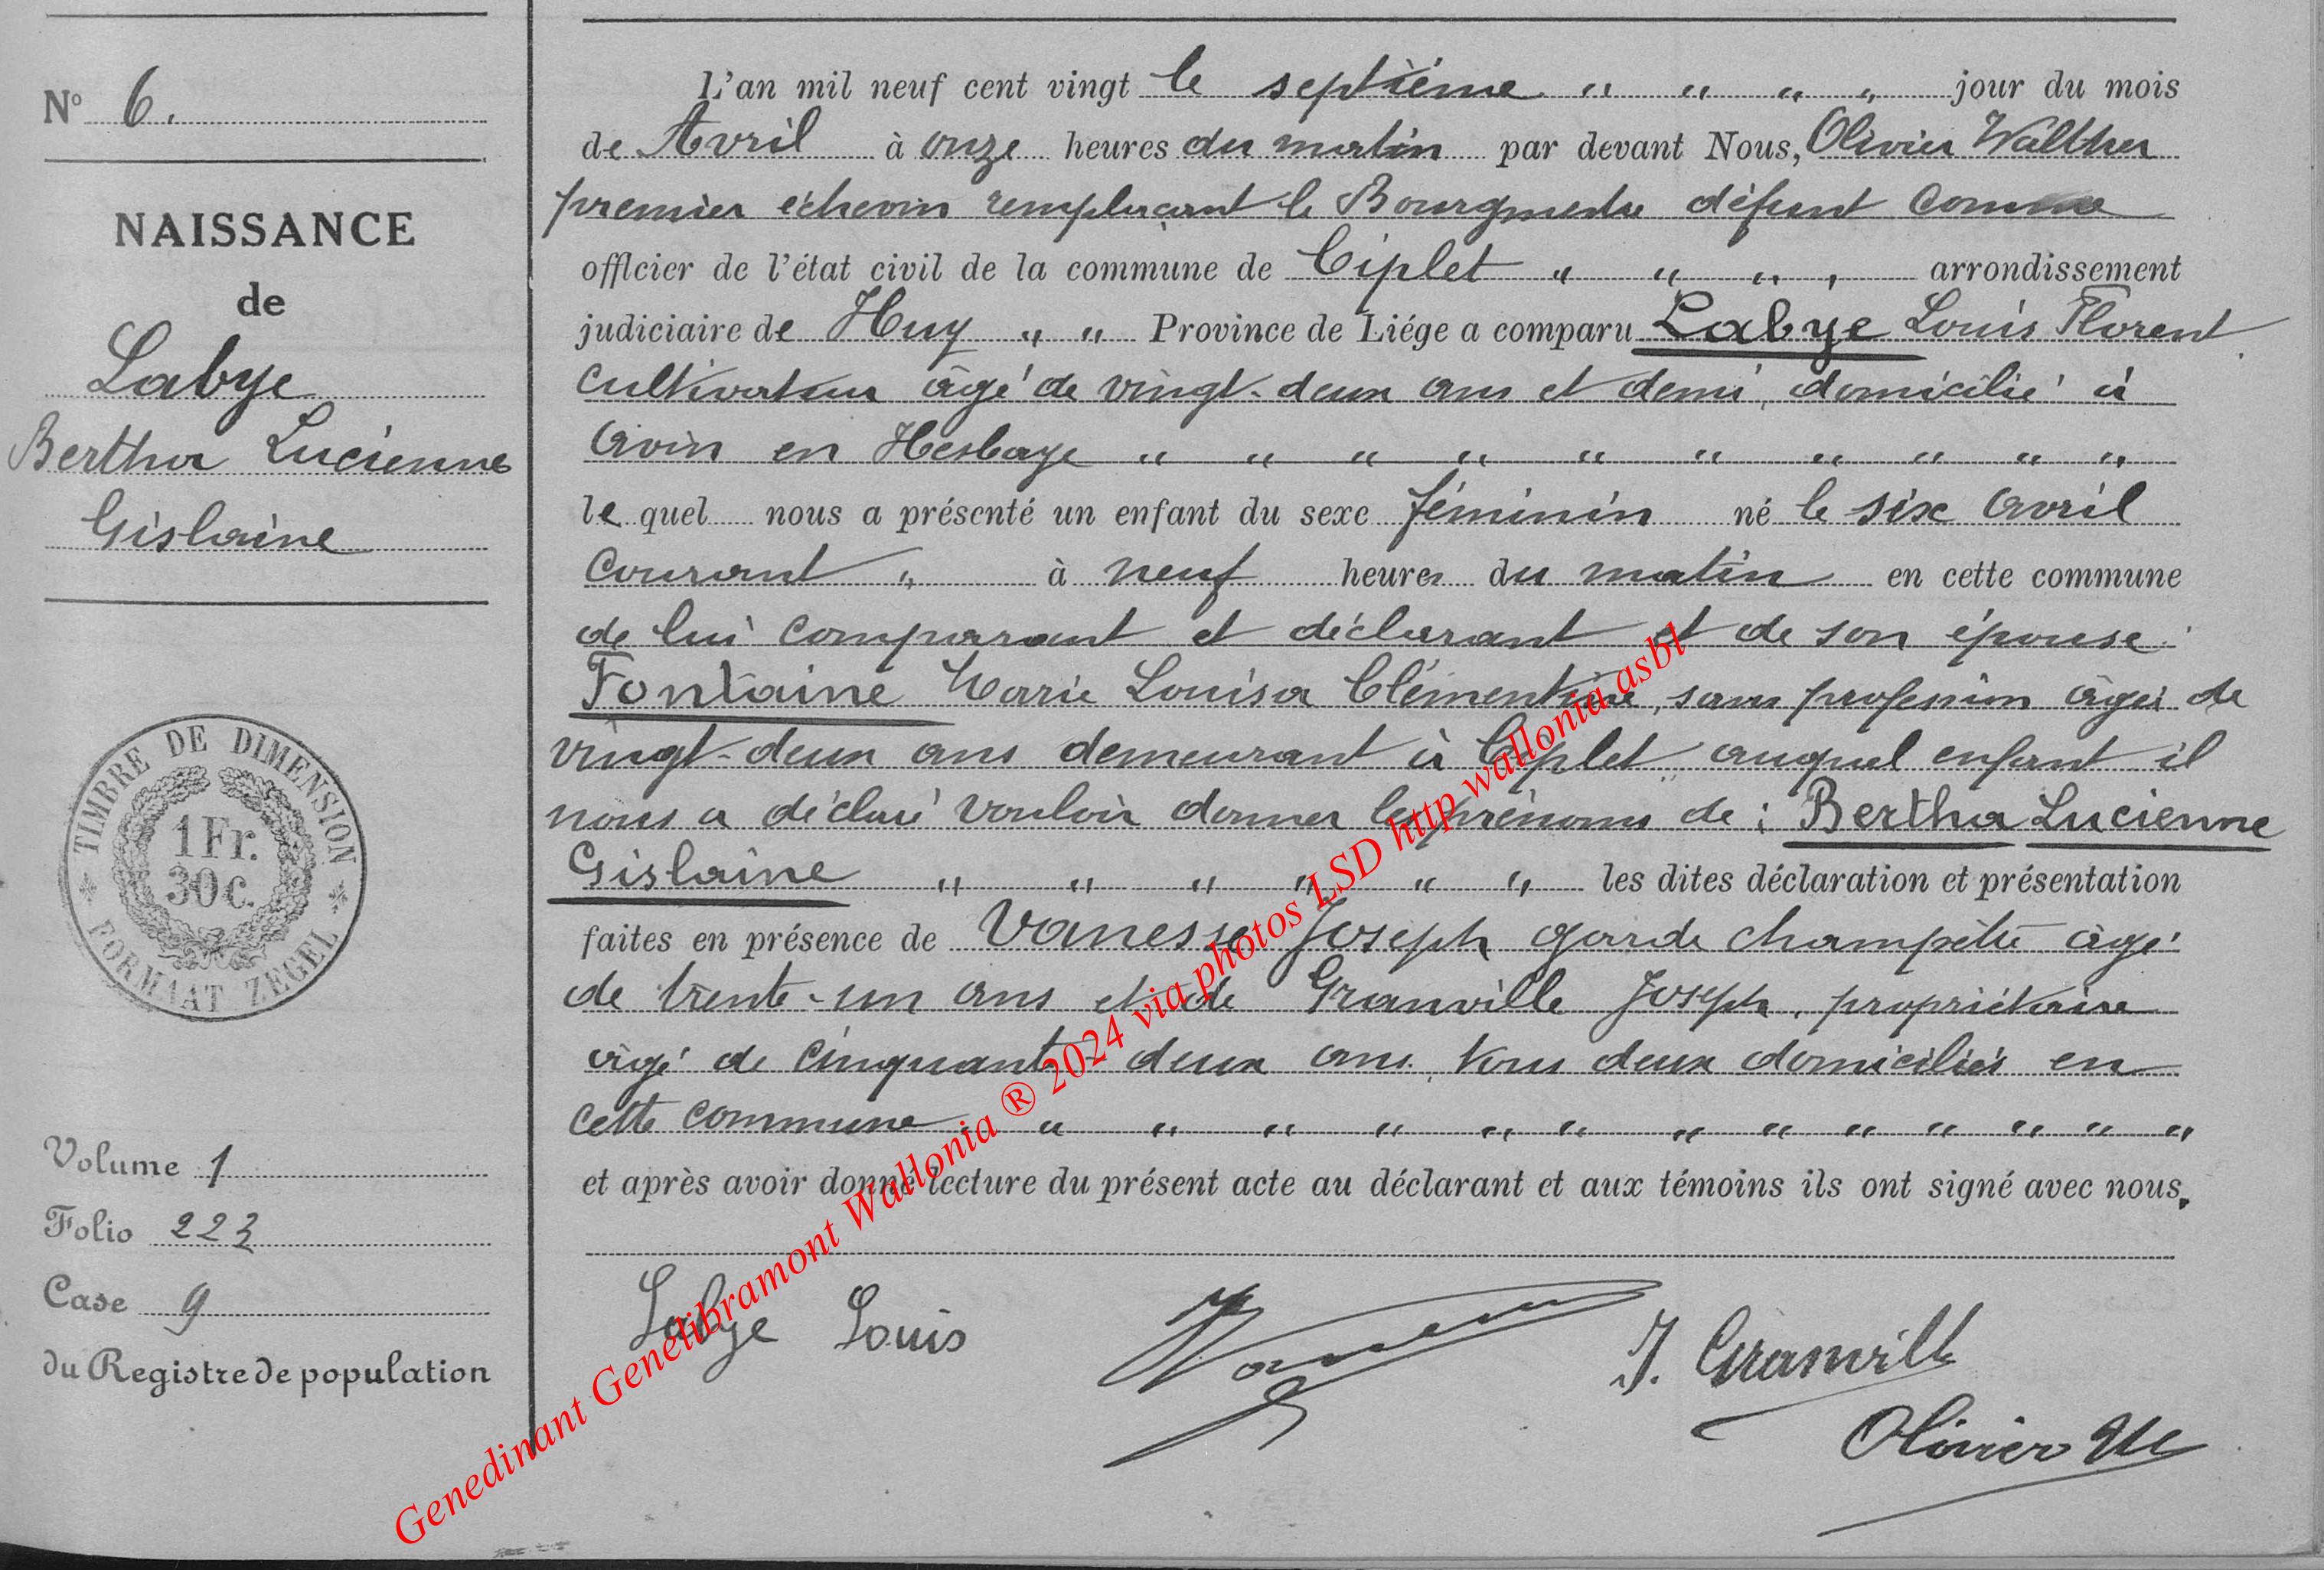 N° 6.
NAISSANCE
de
Labye
Bertha Lucienne
Gislaine
TIMBRE DE DIMENSION
1 Fr.
30 c.
FORMAAT ZEGEL
Volume 1
Folio 223
Case 9
du Registre de population
L'an mil neuf cent vingt le septième " " " " jour du mois
de Avril à onze heures du matin par devant Nous, Olivier Walther
premier échevin remplaçant le Bourgmestre défunt comme
officier de l'état civil de la commune de Ciplet " " " , arrondissement
judiciaire de Huy " " Province de Liége a comparu Labye Louis Florent
cultivateur âgé de vingt-deux ans et demi, domicilié à
Avin en Hesbaye " " " " " " " " " "
le quel nous a présenté un enfant du sexe féminin né le six avril
courant " à neuf heures du matin en cette commune
de lui comparant et déclarant et de son épouse
Fontaine Marie Louisa Clémentine, sans profession âgée de
vingt-deux ans demeurant à Ciplet auquel enfant il
nous a déclaré vouloir donner les prénoms de : Bertha Lucienne
Gislaine " " " " " " les dites déclaration et présentation
faites en présence de Vanesse Joseph garde champêtre âgé
de trente-un ans et de Granville Joseph, propriétaire
âgé de cinquante-deux ans, tous deux domiciliés en
cette commune. " " " " " " " " " " " " "
et après avoir donné lecture du présent acte au déclarant et aux témoins ils ont signé avec nous.
Labye Louis
J. Granville
Olivier
Genedinant Genelibramont Wallonia ® 2024 via photos LSD http wallonia.asbl